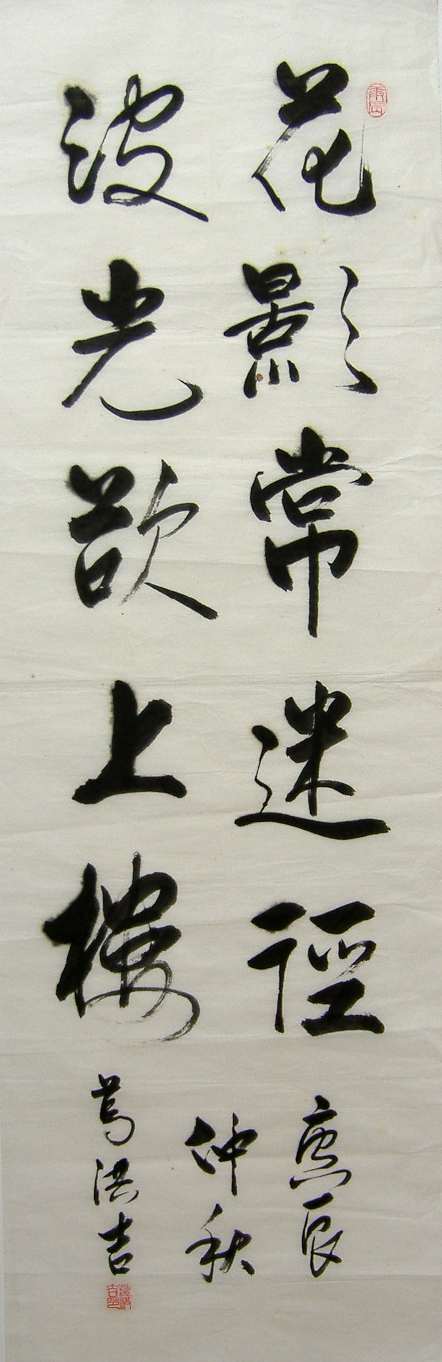 花影常迷徑
波光欲上樓
庚辰
仲秋
洪吉